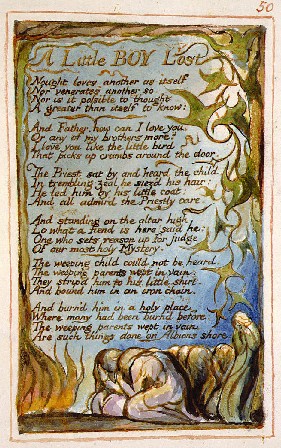 50
A Little BOY Lost
Nought loves another as itself
Nor venerates another so.
Nor is it possible to Thought
A greater than itself to know:
And Father, how can I love you,
Or any of my brothers more?
I love you like the little bird
That picks up crumbs around the door.
The Priest sat by and heard the child,
In trembling zeal he siez'd his hair:
He led him by his little coat:
And all admir'd the Priestly care.
And standing on the altar high,
Lo what a fiend is here! said he:
One who sets reason up for judge
Of our most holy Mystery.
The weeping child could not be heard,
The weeping parents wept in vain:
They strip'd him to his little shirt,
And bound him in an iron chain.
And burn'd him in a holy place,
Where many had been burn'd before:
The weeping parents wept in vain.
Are such things done on Albions shore.